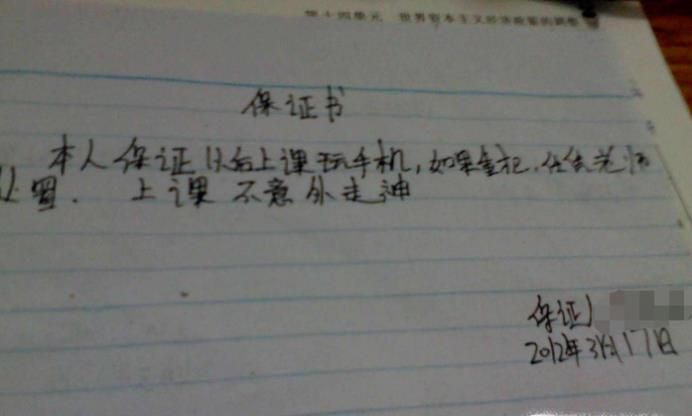 第十四单元 世界资本主义经济政策的调整
保证书
本人保证以后上课玩手机,如果忘记.任由老师
处置. 上课不意外走神
保证人
2012年3月17日